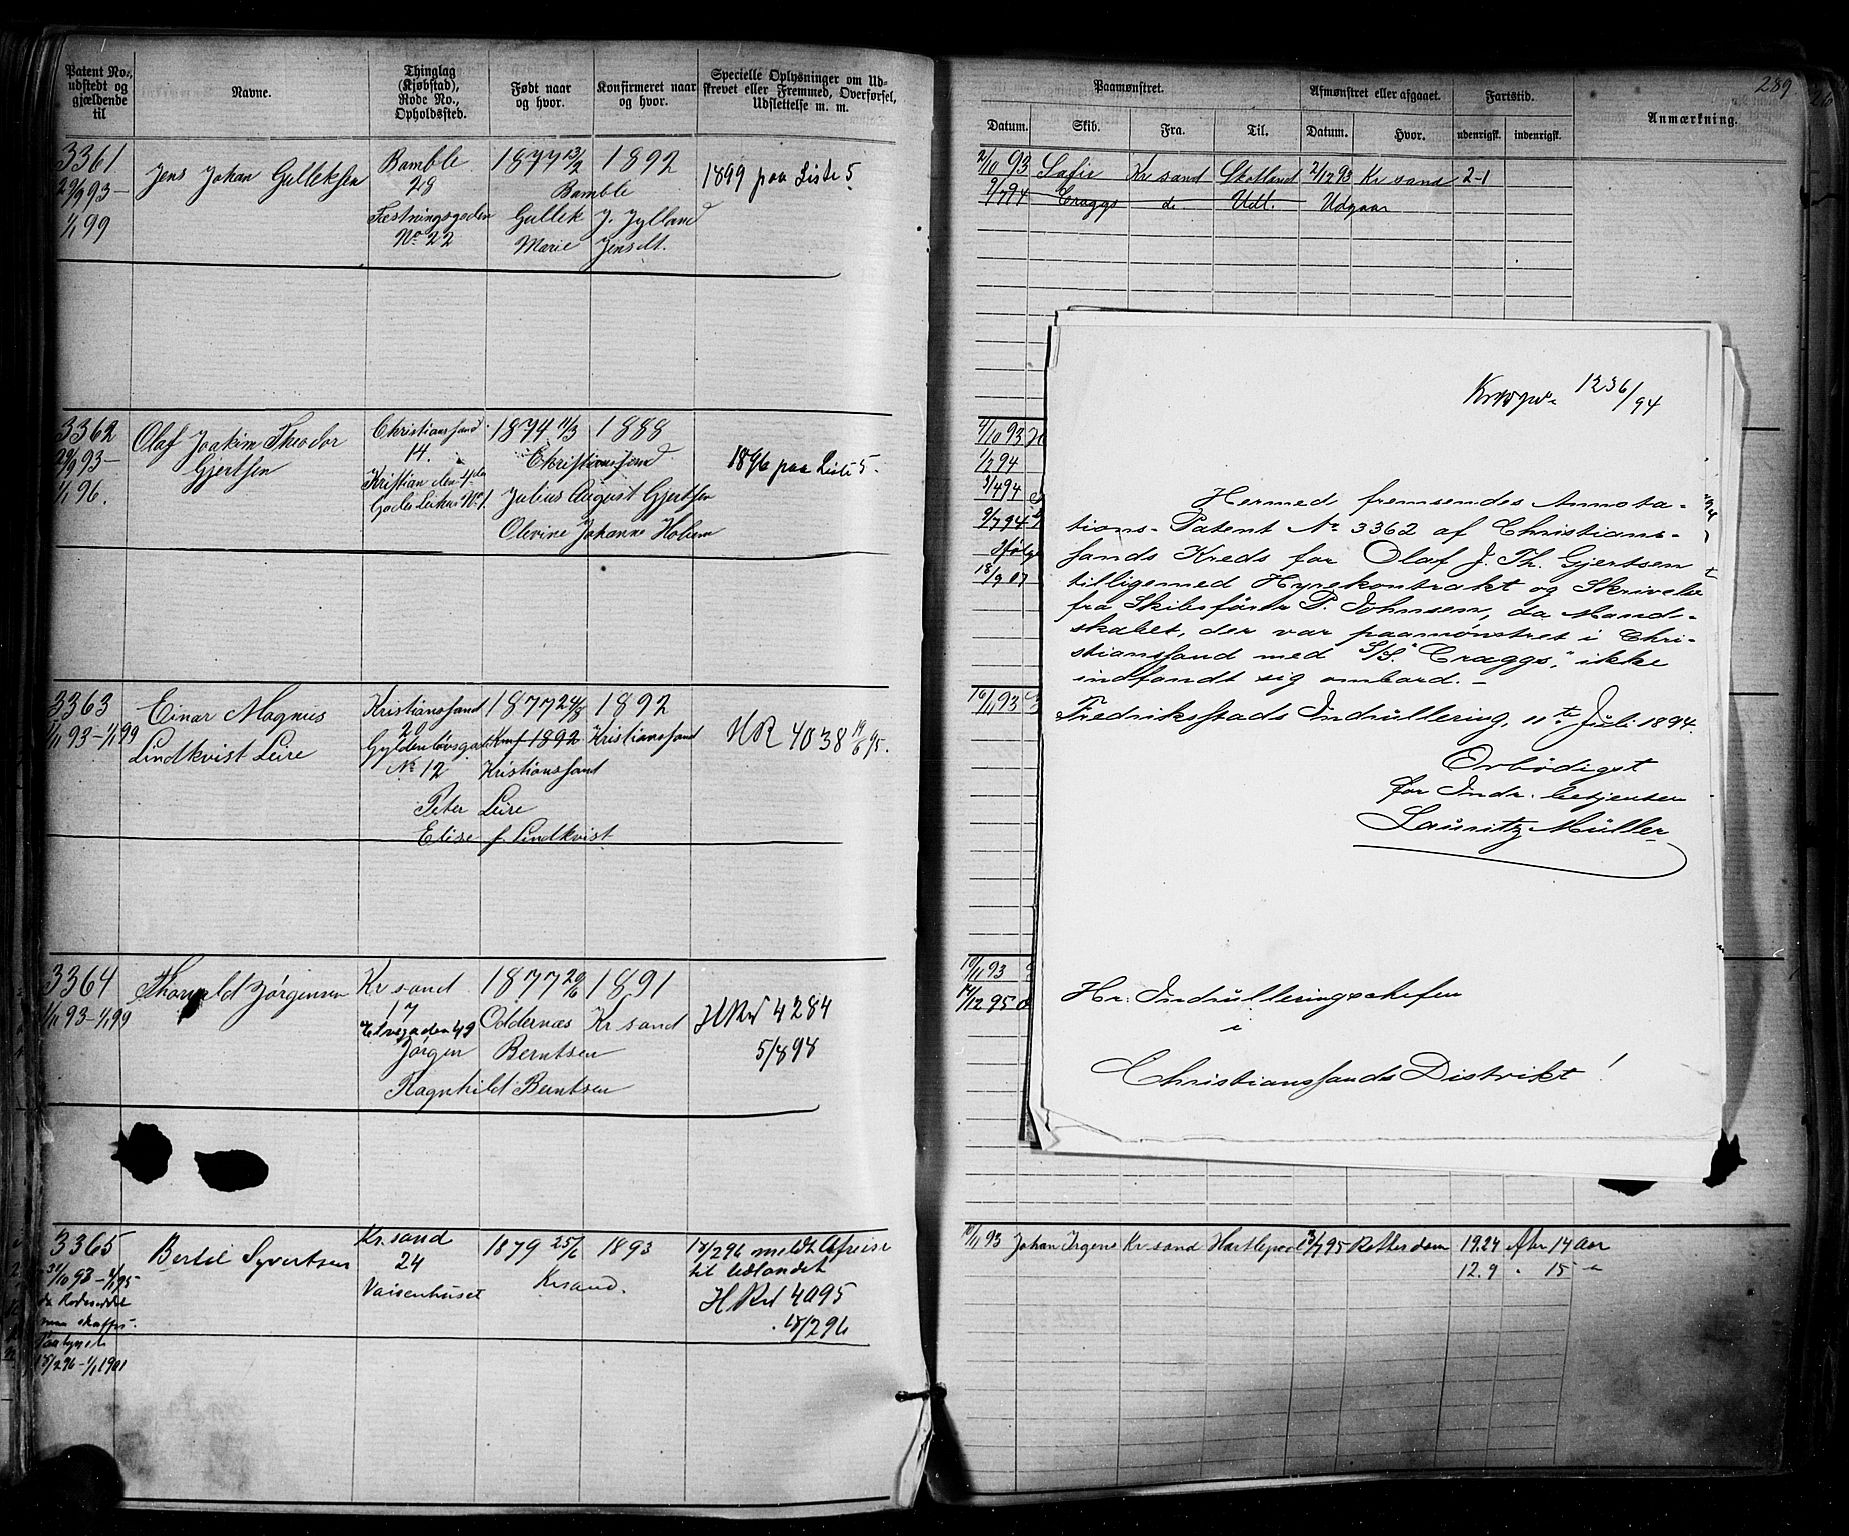 Patent No., udstedt og gjældende til
Navne.
Thinglag (Kjøbstad), Rode No., Opholdssted.
Født naar og hvor.
Konfirmeret naar og hvor.
Specielle Oplysninger om Udskrevet eller Fremmed, Overførsel, Udslettelse m. m.
3361
29/9 93 –
1/1 99
Jens Johan Gulleksen
Bamble
28
Fæstningsgaden
No 22
1877 13/2
1892
Bamble
Gullek J. Jylland
Marie Jensdt.
1899 paa Liste 5.
3362
29/9 93 –
1/1 96.
Olaf Joakim Theodor
Gjertsen
Christianssand
14.
Kristian den 4des
No 1.
1874 11/3
1888
Christianssand
Julius August Gjertsen
Olevine Johanne Holum
1896 paa Liste 5.
3363
1/11 93 – 1/1 99
Einar Magnus
Lindkvist Leire
Kristianssand
20
Gyldenløvsgade
No 12
1877 24/8
1892
Kmf 1892 Kristianssand
Kristianssand
Peter Leire
Elise f. Lindkvist
HR 4038 19/6 95.
3364
1/11 93 – 1/1 99
Thorvald Jörgensen
Kr sand
17
Elvegaden 49
1877 20/6
1891
Oddernæs
Kr sand
Jørgen Berntsen
Ragnhild Berntsen
HRd 4284
5/8 98
3365
31/10 93 – 1/1 95
da Rodeseddel
maa skaffes.
18/2 96 – 1/1 1901
Bertil Syvertsen
Kr. sand
24
Vaisenhuset
1879 25/6
1893
Krsand.
18/2 96 meldt Afreise
til Udlandet
HRd 4095
18/2 96
289
Paamønstret.
Afmønstret eller afgaaet.
Fartstid.
Anmærkning.
Datum.
Skib.
Fra.
Til.
Datum.
Hvor.
udenrigsk.
indenrigsk.
2/10 93 Safir Kr sand Skotland 2/12 93 Kr sand 2-1
9/7 94 Craggs do Udl. Udgaar
4/10 93
1/2 94
3/4 94
9/7 94
18/9 07
16/11 93
10/11 93
14/12 95
10/11 93 Johan Irgens Kr sand Hartlepool 13/7 95 Rotterdam 19.24 Afbr 14 Aar
12.9 " 15 "
1236/94
Hermed fremsendes Annota-
tions-Patent No 3362 af Christians-
sands Kreds for Olaf J. Th. Gjertsen
tilligemed Hyrekontrakt og Skrivelse
fra Skibsfører P. Johnsen, da Mand-
skabet, der var paamønstret i Chri-
stianssand med S/S. "Craggs," ikke
indfandt sig ombord. –
Fredriksstads Indrullering, 11te Juli 1894.
Ærbödigst
for Indr. betjenten
Lauritz Müller
Hr. Indrulleringschefen
i
Christianssands Distrikt!